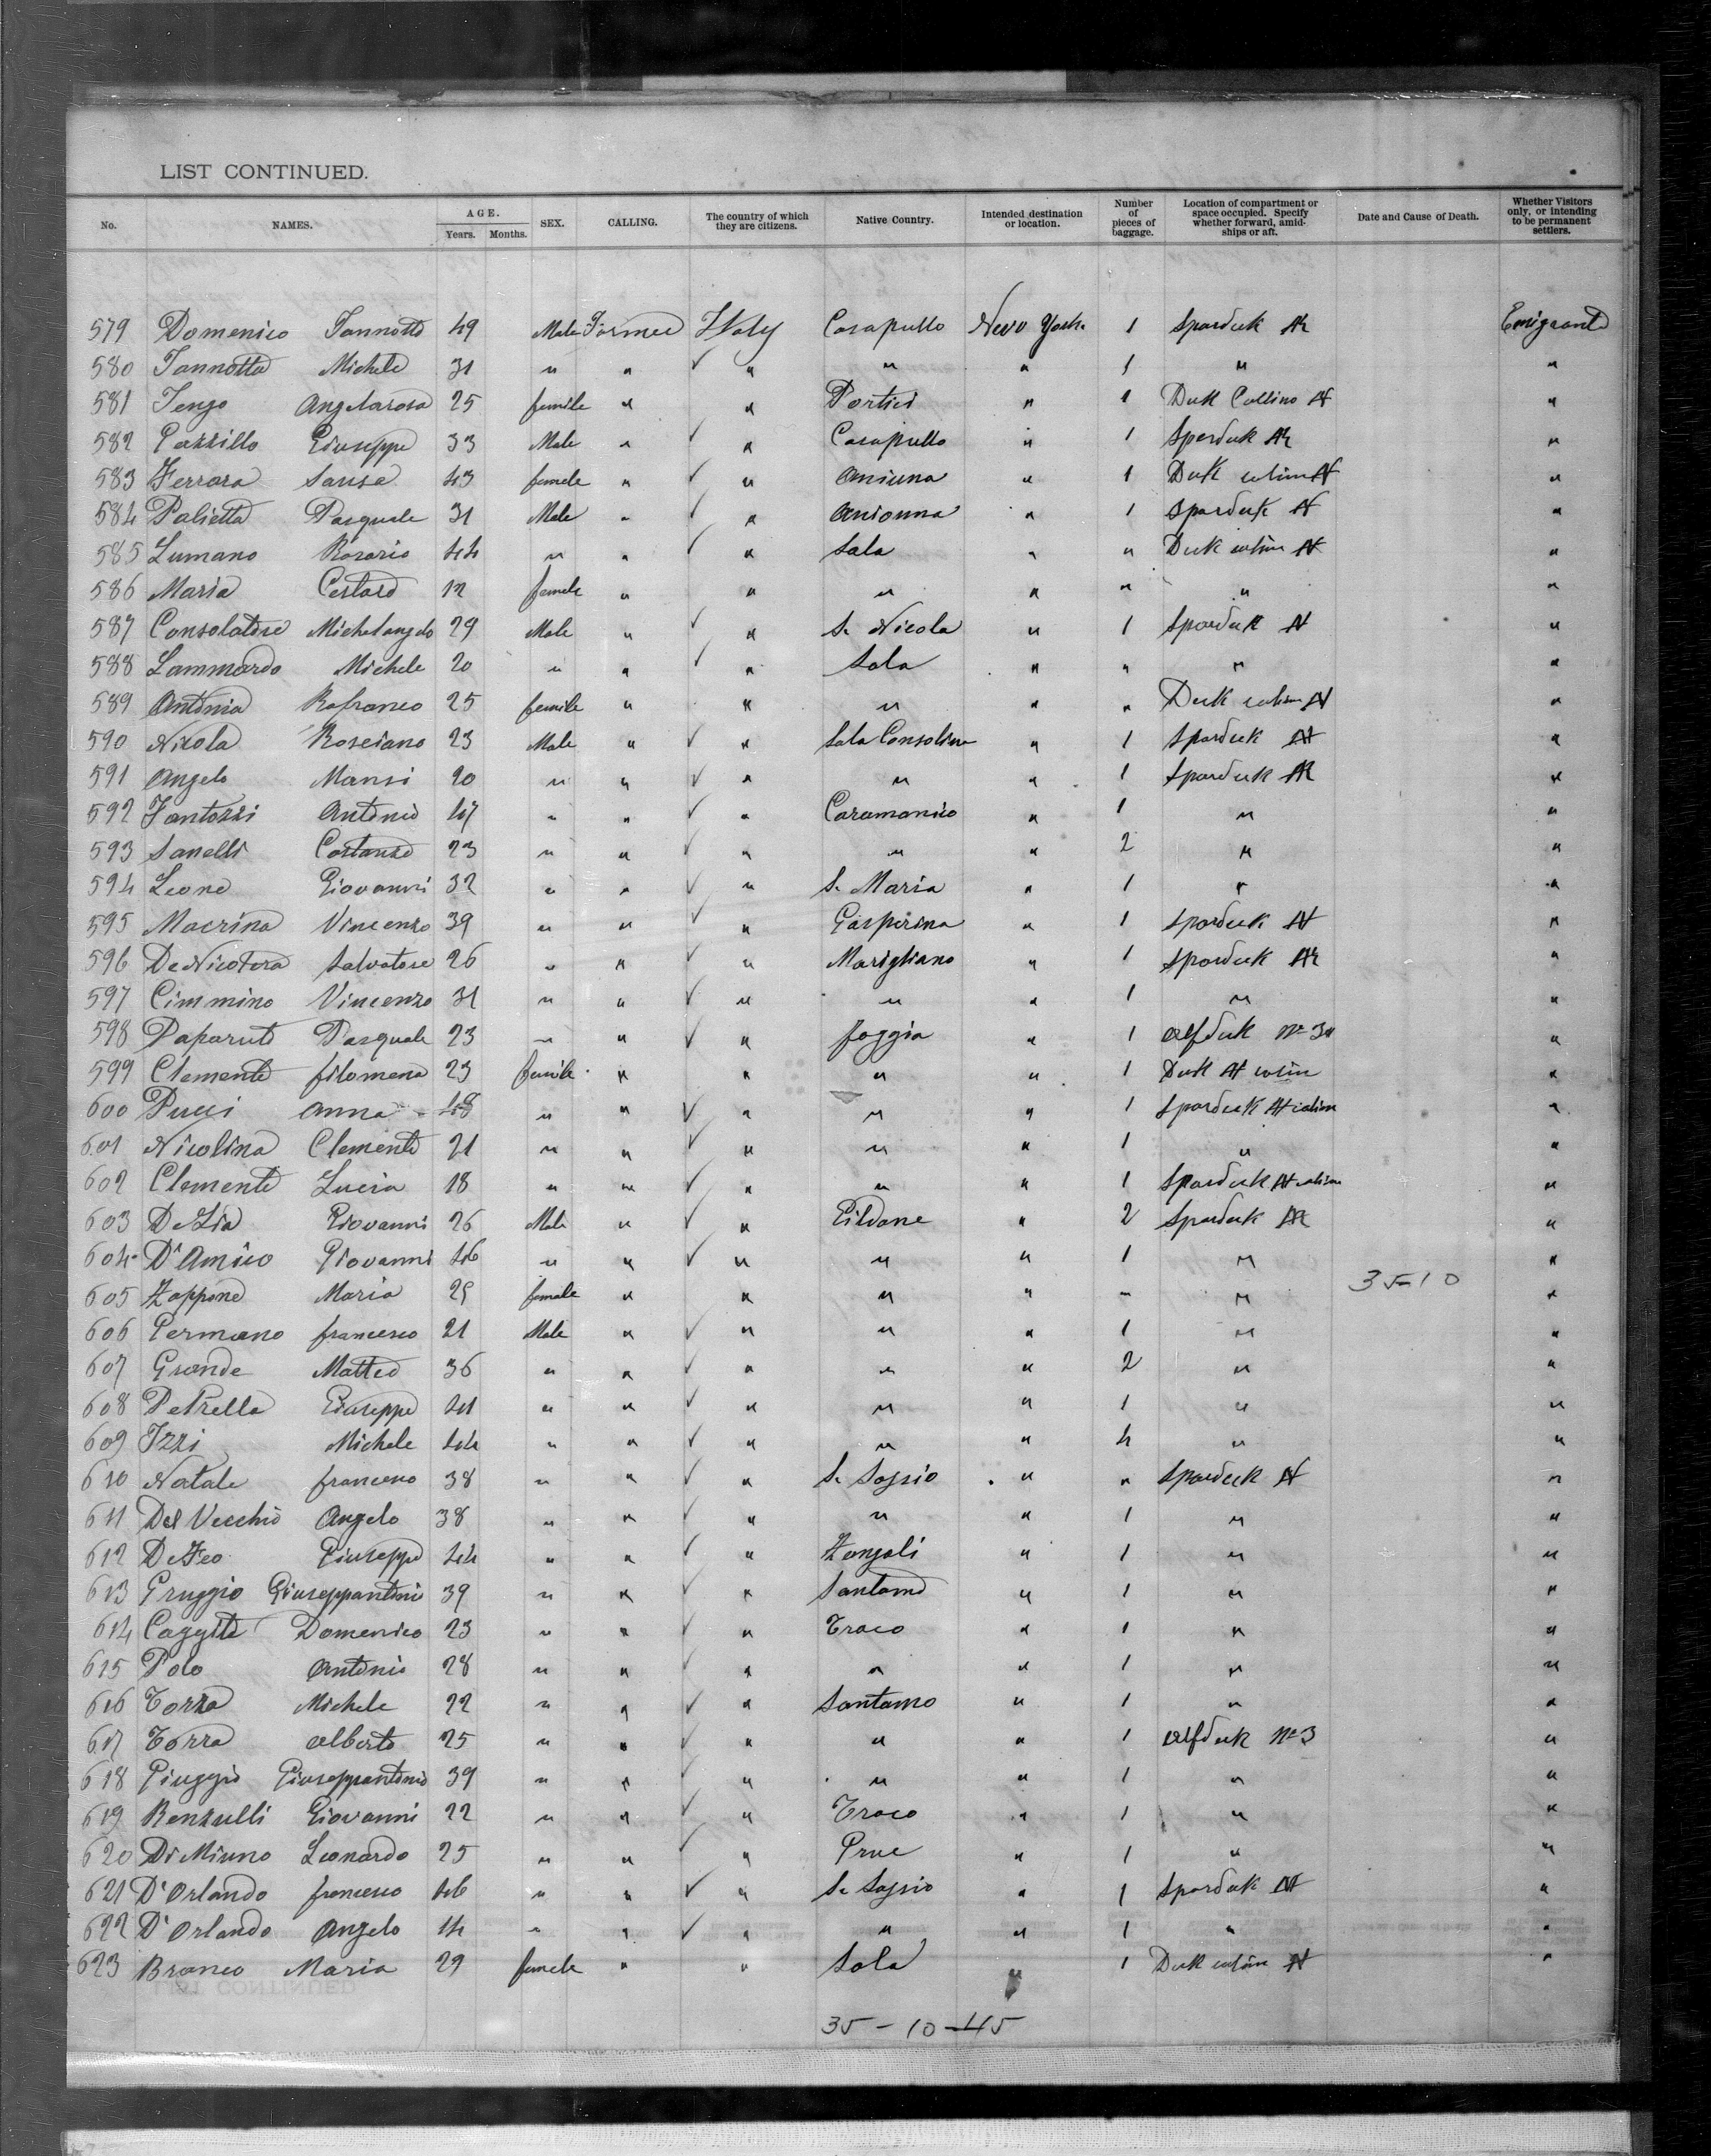 LIST CONTINUED.
No. NAMES. AGE. Years. Months. SEX. CALLING. The country of which they are citizens. Native Country. Intended destination or location. Number of pieces of baggage. Location of compartment or space occupied. Specify whether forward, amidships or aft. Date and Cause of Death. Whether Visitors only, or intending to be permanent settlers.
579 Domenico Iannotto 49 Male Farmer Italy Casapullo New York 1 Spardeck Emigrants
580 Iannotta Michele 31 " " ✓ " " " 1 " "
581 Angelarosa 25 female " " Portici " 1 Deck "
582 Giuseppe 33 Male " ✓ " Casapullo " 1 Spardeck "
583 Ferrara 43 female " ✓ " " 1 Deck "
584 Palietta Pasquale 31 Male " ✓ " " 1 Spardeck "
585 Lumano Rosario 44 " " ✓ " Sala " " Deck "
586 Maria 12 female " " " " " " "
587 Consolatore Michelangelo 29 Male " ✓ " S. Nicola " 1 Spardeck "
588 Lammardo Michele 20 " " ✓ " Sala " " " "
589 Antonia Rofranco 25 female " " " " " Deck "
590 Nicola Rosciano 23 Male " ✓ " Sala Consolina " 1 Spardeck "
591 Angelo Mansi 20 " " ✓ " " " 1 Spardeck "
592 Fantozzi Antonio 47 " " ✓ " Caramanico " 1 " "
593 Sanelli Costanzo 23 " " ✓ " " " 2 " "
594 Leone Giovanni 32 " " ✓ " S. Maria " 1 " "
595 Macrina Vincenzo 39 " " ✓ " Gasperina " 1 Spardeck "
596 DeNicotera Salvatore 26 " " ✓ " Marigliano " 1 Spardeck "
597 Cimmino Vincenzo 31 " " ✓ " " " 1 " "
598 Paparuto Pasquale 23 " " ✓ " foggia " 1 "
599 Clemente filomena 23 female " " " " 1 Deck "
600 Pucci Anna 48 " " ✓ " " " 1 Spardeck "
601 Nicolina Clemente 21 " " ✓ " " " 1 " "
602 Clemente Lucia 18 " " ✓ " " " 1 Spardeck "
603 Giovanni 26 Male " ✓ " Gildone " 2 Spardeck "
604 D'Amico Giovanni 46 " " ✓ " " " 1 " "
605 Zappone Maria 29 female " " " " - " 35-10 "
606 Germano francesco 21 Male " ✓ " " " 1 " "
607 Grande Matteo 36 " " ✓ " " " 2 " "
608 Petrella Giuseppe 41 " " ✓ " " " 1 " "
609 Izzi Michele 44 " " ✓ " " " 4 " "
610 Natale francesco 38 " " ✓ " S. Sossio " " Spardeck "
611 Del Vecchio Angelo 38 " " ✓ " " " 1 " "
612 DeFeo Giuseppe 44 " " ✓ " Zungoli " 1 " "
613 Gruggio Giuseppantonio 39 " " ✓ " " 1 " "
614 Domenico 23 " " ✓ " " 1 " "
615 Polo Antonio 28 " " ✓ " " " 1 " "
616 Torza Michele 22 " " ✓ " Santamo " 1 " "
617 Torza Alberto 25 " " ✓ " " " 1 "
618 Giuggio Giuseppantonio 39 " " ✓ " " " 1 " "
619 Renzulli Giovanni 22 " " ✓ " " 1 " "
620 Leonardo 25 " " ✓ " " 1 " "
621 D'Orlando francesco 46 " " ✓ " S. Sossio " 1 Spardeck "
622 D'Orlando Angelo 14 " " ✓ " " " 1 " "
623 Branco Maria 29 female " " Sala " 1 Deck "
35-10-45